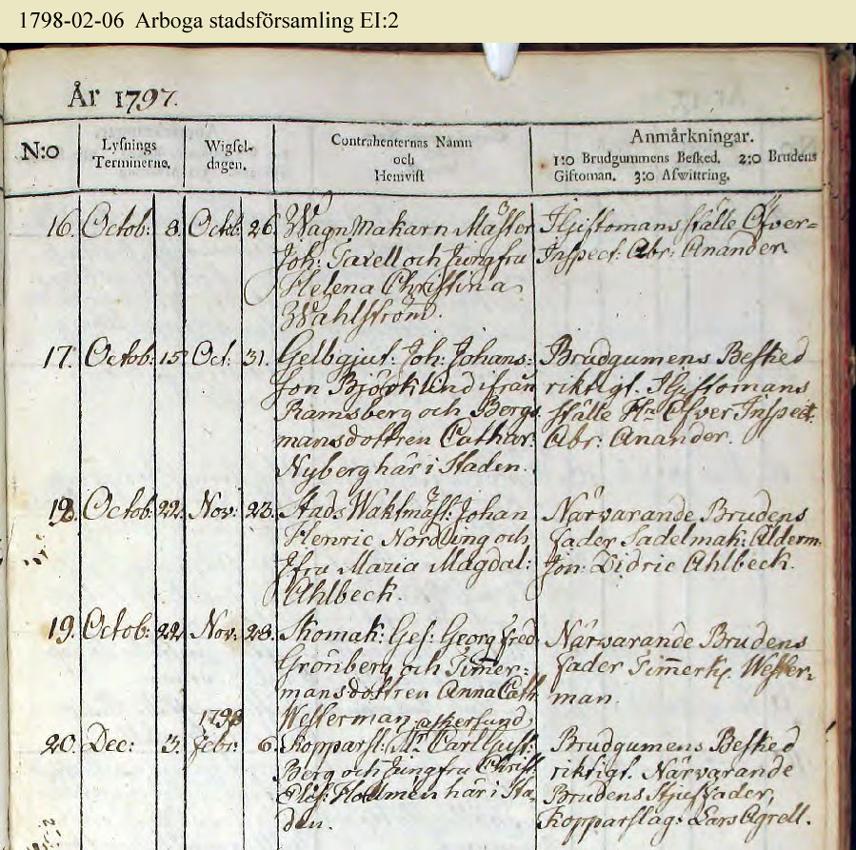 1798-02-06 Arboga stadsförsamling EI:2
År 1797.
N:o
Lysnings
Terminerne.
Wigsel-
dagen.
Contrahenternas Namn
och
Hemvist
Anmärkningar.
1:o Brudgummens Besked. 2:o Brudens
Giftoman. 3:o Afwittring.
16. Octob: 8. Octob: 26.
Wagnmakarn Mäster
Joh: Gavell och Jungfru
Helena Christina
Wahlström.
I Giftomans ställe Öfver-
Inspect: Abr: Anander
17. Octob: 15. Oct: 31.
Gelbgjut: Joh: Johans-
son Björklind ifrån
Ramsberg och Bergs-
mansdottren Cathar:
Nyberg här i Staden.
Brudgumens Besked
riktigt. I Giftomans
ställe Hr. Öfver Inspect:
Abr: Anander.
18. Octob: 22. Nov: 23.
Stads Waktmäst: Johan
Henric Nordling och
Jfru Maria Magdal:
Ahlbeck.
Närvarande Brudens
fader Sadelmak: Ålderm:
Jon: Didric Ahlbeck.
19. Octob: 22. Nov: 28.
Skomak: Ges: Georg Fred:
Grönberg och Timmer-
mansdottren Anna Cath:
Westerman
Närvarande Brudens
fader Westter-
man.
1798
20. Dec: 3. Febr: 6.
askersund
Kopparsl: Mr. Carl Gust:
Berg och Jungfru Christ:
här i Sta-
den.
Brudgumens Besked
riktigt. Närvarande
Brudens Stjuffader,
Kopparslag: Lars Agrell.